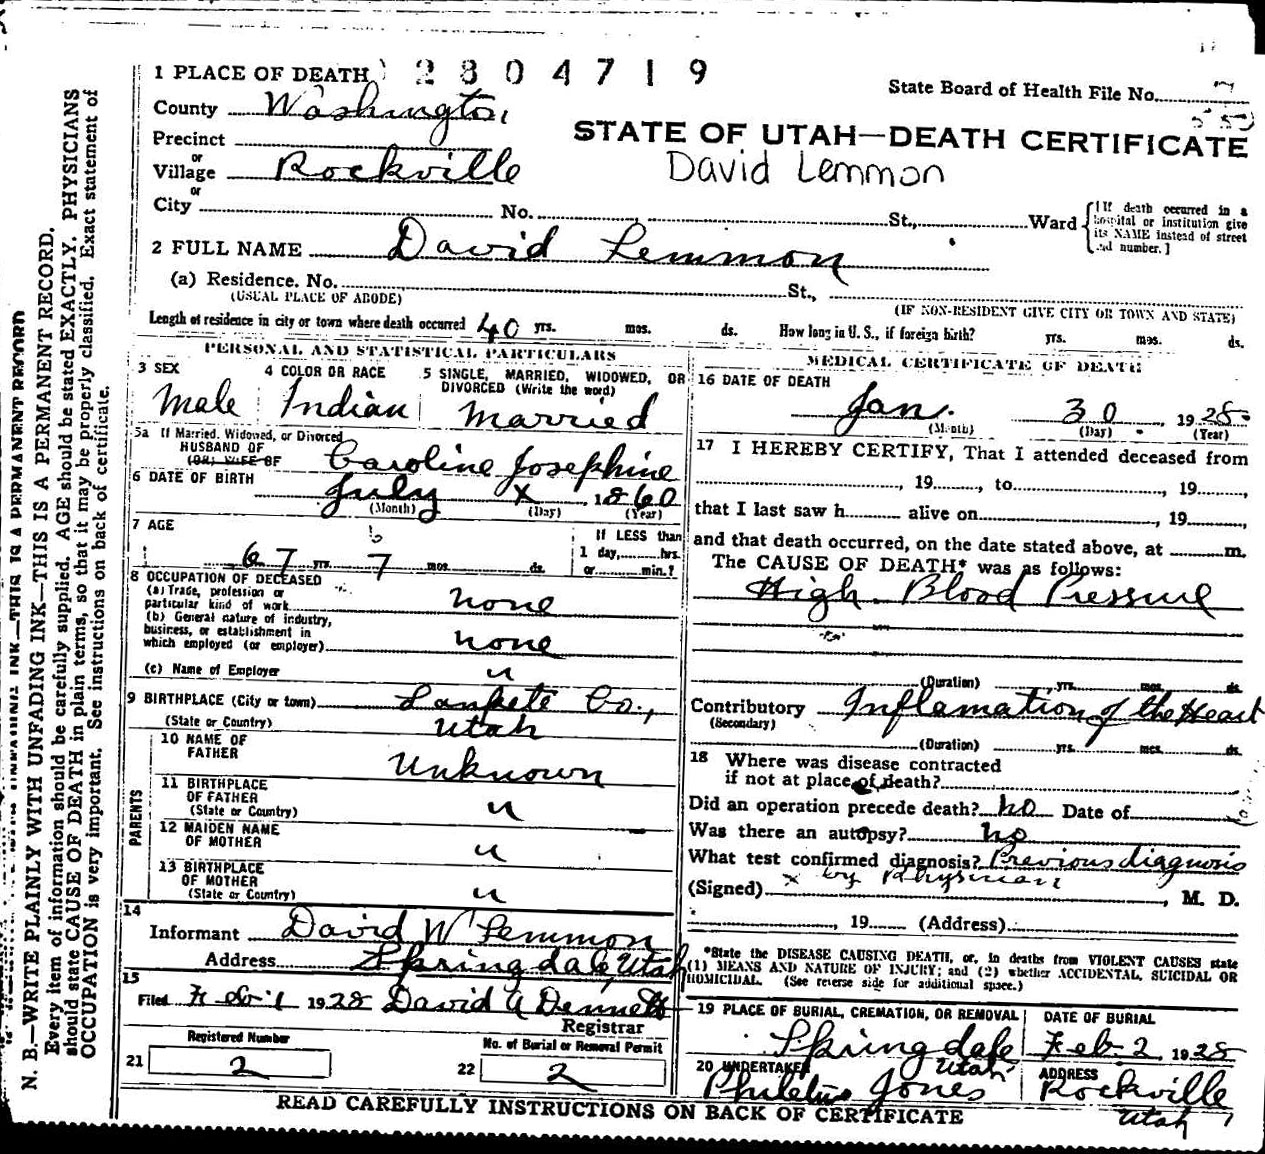 1 PLACE OF DEATH 2804719
State Board of Health File No.
County Washington
STATE OF UTAH—DEATH CERTIFICATE
Precinct
or
Village Rockville
David Lemmon
or
City No. St., Ward
[If death occurred in a
hospital or institution give
its NAME instead of street
and number.]
2 FULL NAME David Lemmon
(a) Residence. No. St.,
(USUAL PLACE OF ABODE) (IF NON-RESIDENT GIVE CITY OR TOWN AND STATE)
Length of residence in city or town where death occurred 40 yrs. mos. ds. How long in U. S., if foreign birth? yrs. mos. ds.
PERSONAL AND STATISTICAL PARTICULARS
3 SEX 4 COLOR OR RACE 5 SINGLE, MARRIED, WIDOWED, OR
DIVORCED (Write the word)
Male Indian Married
5a If Married, Widowed, or Divorced
HUSBAND OF
(OR) WIFE OF Caroline Josephine
6 DATE OF BIRTH July X 1860
(Month) (Day) (Year)
7 AGE 6 If LESS than
1 day, hrs.
67 yrs. 7 mos. ds. or min.?
8 OCCUPATION OF DECEASED
(a) Trade, profession or
particular kind of work none
(b) General nature of industry,
business, or establishment in
which employed (or employer) none
(c) Name of Employer "
9 BIRTHPLACE (City or town) Sanpete Co.,
(State or Country) Utah
PARENTS
10 NAME OF
FATHER Unknown
11 BIRTHPLACE
OF FATHER
(State or Country) "
12 MAIDEN NAME
OF MOTHER "
13 BIRTHPLACE
OF MOTHER
(State or Country) "
14
Informant David W Lemmon
Address Springdale, Utah
15
Filed Feb 1 1928 David A Dennett
Registrar
Registered Number No. of Burial or Removal Permit
21 2 22 2
MEDICAL CERTIFICATE OF DEATH
16 DATE OF DEATH
Jan. 30, 1928
(Month) (Day) (Year)
17 I HEREBY CERTIFY, That I attended deceased from
, 19, to, 19,
that I last saw h alive on, 19
and that death occurred, on the date stated above, at m.
The CAUSE OF DEATH* was as follows:
High Blood Pressure
(Duration) yrs. mos. ds.
Contributory Inflamation of the Heart
(Secondary)
(Duration) yrs. mos. ds.
18 Where was disease contracted
if not at place of death?
Did an operation precede death? no Date of
Was there an autopsy? no
What test confirmed diagnosis? Previous diagnosis
x by Physician
(Signed), M. D.
, 19 (Address)
*State the DISEASE CAUSING DEATH, or, in deaths from VIOLENT CAUSES state
(1) MEANS AND NATURE OF INJURY; and (2) whether ACCIDENTAL, SUICIDAL OR
HOMICIDAL. (See reverse side for additional space.)
19 PLACE OF BURIAL, CREMATION, OR REMOVAL DATE OF BURIAL
Springdale Feb 2, 1928
Utah
20 UNDERTAKER ADDRESS
Philetus Jones Rockville
Utah
READ CAREFULLY INSTRUCTIONS ON BACK OF CERTIFICATE
N. B.—WRITE PLAINLY WITH UNFADING INK—THIS IS A PERMANENT RECORD.
Every item of information should be carefully supplied. AGE should be stated EXACTLY. PHYSICIANS
should state CAUSE OF DEATH in plain terms, so that it may be properly classified. Exact statement of
OCCUPATION is very important. See instructions on back of certificate.